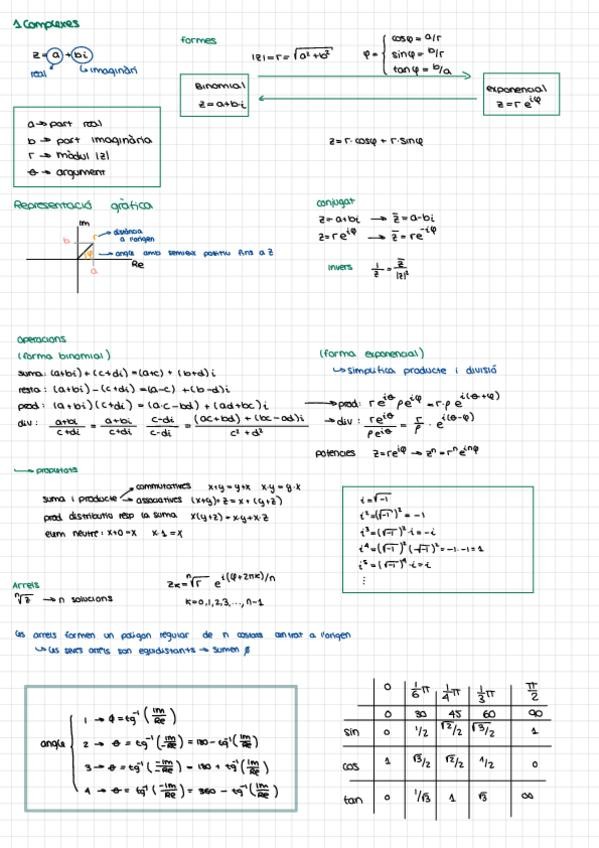 1 Complexes
z=a+bi
real
imaginàri
formes
|z|=r=√a²+b²
φ=
cosφ=a/r
sinφ=b/r
tanφ=b/a
Binomial
z=a+b·i
exponencial
z=r e^iφ
a→part real
b→part imaginària
r→mòdul |z|
θ→argument
z=r·cosφ+r·sinφ
Representació gràfica
Im
b
r
distància
a l'origen
φ
angle amb semieix positiu fins a z
a
Re
conjugat
z=a+bi → z̄=a-bi
z=re^iφ → z̄=re^-iφ
invers 1/z=z̄/|z|²
operacions
(forma binomial)
suma: (a+bi)+(c+di)=(a+c)+(b+d)i
resta: (a+bi)-(c+di)=(a-c)+(b-d)i
prod: (a+bi)(c+di)=(a·c-bd)+(ad+bc)i
div: (a+bi)/(c+di)=(a+bi)/(c+di) (c-di)/(c-di)=((ac+bd)+(bc-ad)i)/(c²+d²)
(forma exponencial)
simplifica producte i divisió
prod: re^iθ ρe^iφ=r·ρ e^i(θ+φ)
div: re^iθ/ρe^iφ=r/ρ·e^i(θ-φ)
potències z=re^iφ → zⁿ=rⁿe^inφ
propietats
suma i producte
commutatives x+y=y+x x·y=y·x
associatives (x+y)+z=x+(y+z)
prod distributiu resp la suma x(y+z)=x·y+x·z
elem neutre: x+0=x x·1=x
i=√-1
i²=(√-1)²=-1
i³=(√-1)²·i=-i
i⁴=(√-1)²(√-1)²=-1·-1=1
i⁵=(√-1)⁴·i=i
⋮
Arrels
ⁿ√z → n solucions
zₖ=ⁿ√r e^i(φ+2πk)/n
k=0,1,2,3,...,n-1
les arrels formen un polígon regular de n costats centrat a l'origen
les seves arrels son equidistants → sumen ∅
angle
1 → θ=tg⁻¹(Im/Re)
2 → θ=tg⁻¹(Im/-Re)=180-tg⁻¹(Im/Re)
3 → θ=tg⁻¹(-Im/-Re)=180+tg⁻¹(Im/Re)
4 → θ=tg⁻¹(-Im/Re)=360-tg⁻¹(Im/Re)
0 1/6π 1/4π 1/3π π/2
0 30 45 60 90
sin 0 1/2 √2/2 √3/2 1
cos 1 √3/2 √2/2 1/2 0
tan 0 1/√3 1 √3 ∞